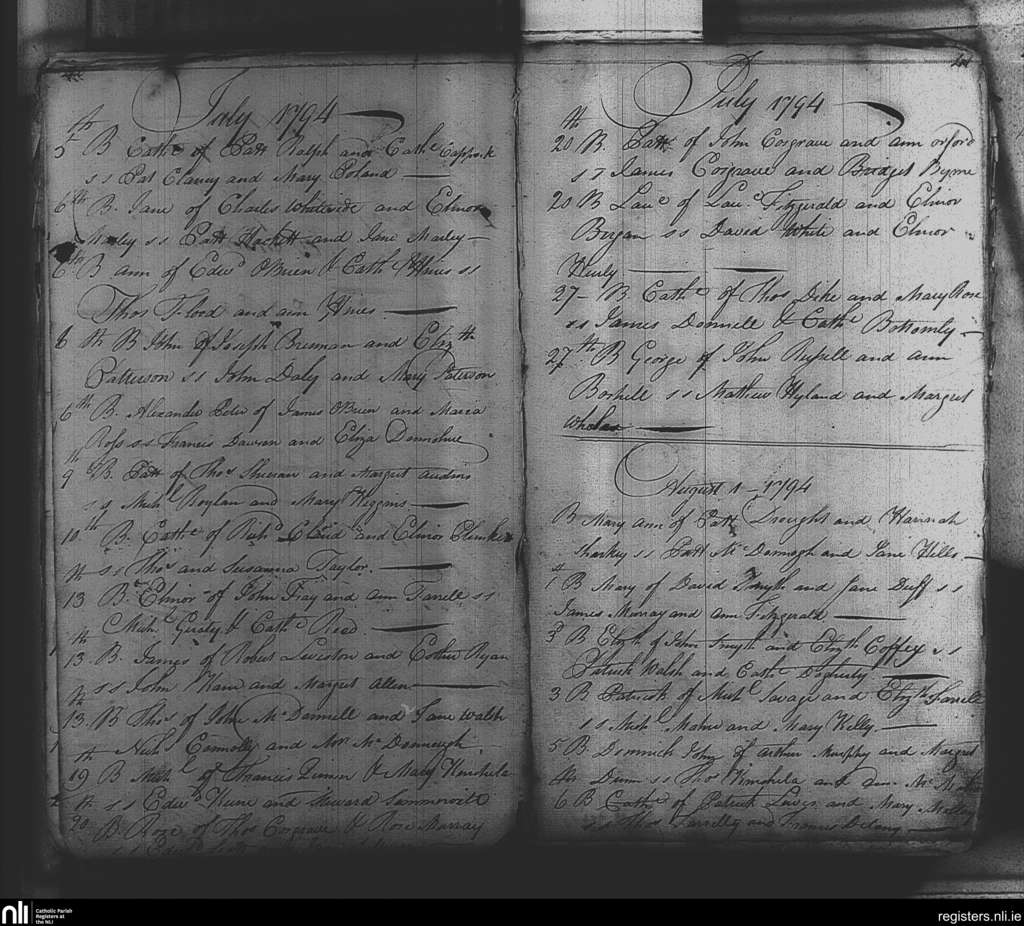 July 1794
5th B Cathe of Patt Ralph and Cathe Cappock
ss Pat Clancy and Mary Poland
6th B. Jane of Charles Whiteside and Elinor
Marley ss Patt Hackett and Jane Marley
6th B ann of Edwd OBrien & Cathe Hines ss
Thos Flood and ann Hines
6th B John of Joseph Brennan and Elizth
Patterson ss John Daly and Mary Paterson
6th B. Alexander Peter of James OBrien and Maria
Ross ss Francis Dawson and Eliza Donnohue
9th B. Patt of Thos Sheran and Margret
ss Michl Boylan and Mary Higgins
10th B. Cathe of Richd and Elinor
ss Thos and Susanna Taylor.
13th B. Elinor of John Fray and ann Farrell ss
Michl Geraty & Cathe Reed.
13th B. James of Robert Leviston and Esther Ryan
ss John Kane and Margret Allen
13th B Thos of John McDannell and Jane Walsh
Michl Connolly and McDonnough
19th B Michl of Francis Quinn & Mary Kinshela
ss Edwd Kune and Howard Sommervill
20th B. Rose of Thos Cosgrave & Rose Murray
ss
July 1794
20th B. Patt of John Cosgrave and ann orford
ss James Cosgrave and Bridget Byrne
20 B Laue of Laue Fitzgerald and Elinor
Bergan ss David White and Elinor
Henly
27 - B. Cathe of Thos Dike and Mary Rose
ss James Donnell & Cathe Bottomly
27th B George of John Russell and ann
Boshell ss Mathew Hyland and Margret
Whelan
August 1 - 1794
B Mary ann of Patt Drought and Hannah
Sharkey ss Patt McDarmogh and Jane Hills
1st B Mary of David Smyth and Jane Duff ss
James Murray and ann Fitzgerald
3d B Elizth of John Smyth and Elizth Coffey ss
Patrick Walsh and Cathe Dogherty
3 B Patrick of Michl Savage and Elizth Farrell
ss Michl and Mary Kelly
5th B. Dominick John of Arthur Murphy and Margret
Dunn ss Thos Kinshela and Ann
6th B Cathe of Patrick and Mary
ss Thos and Francis Delany
nli
Catholic Parish
Registers at
the NLI
registers.nli.ie